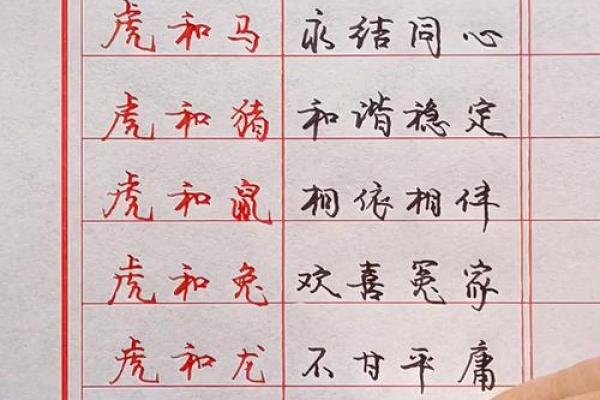 虎和马 永结同心
虎和猪 和谐稳定
虎和鼠 相依相伴
虎和兔 欢喜冤家
虎和龙 不甘平庸